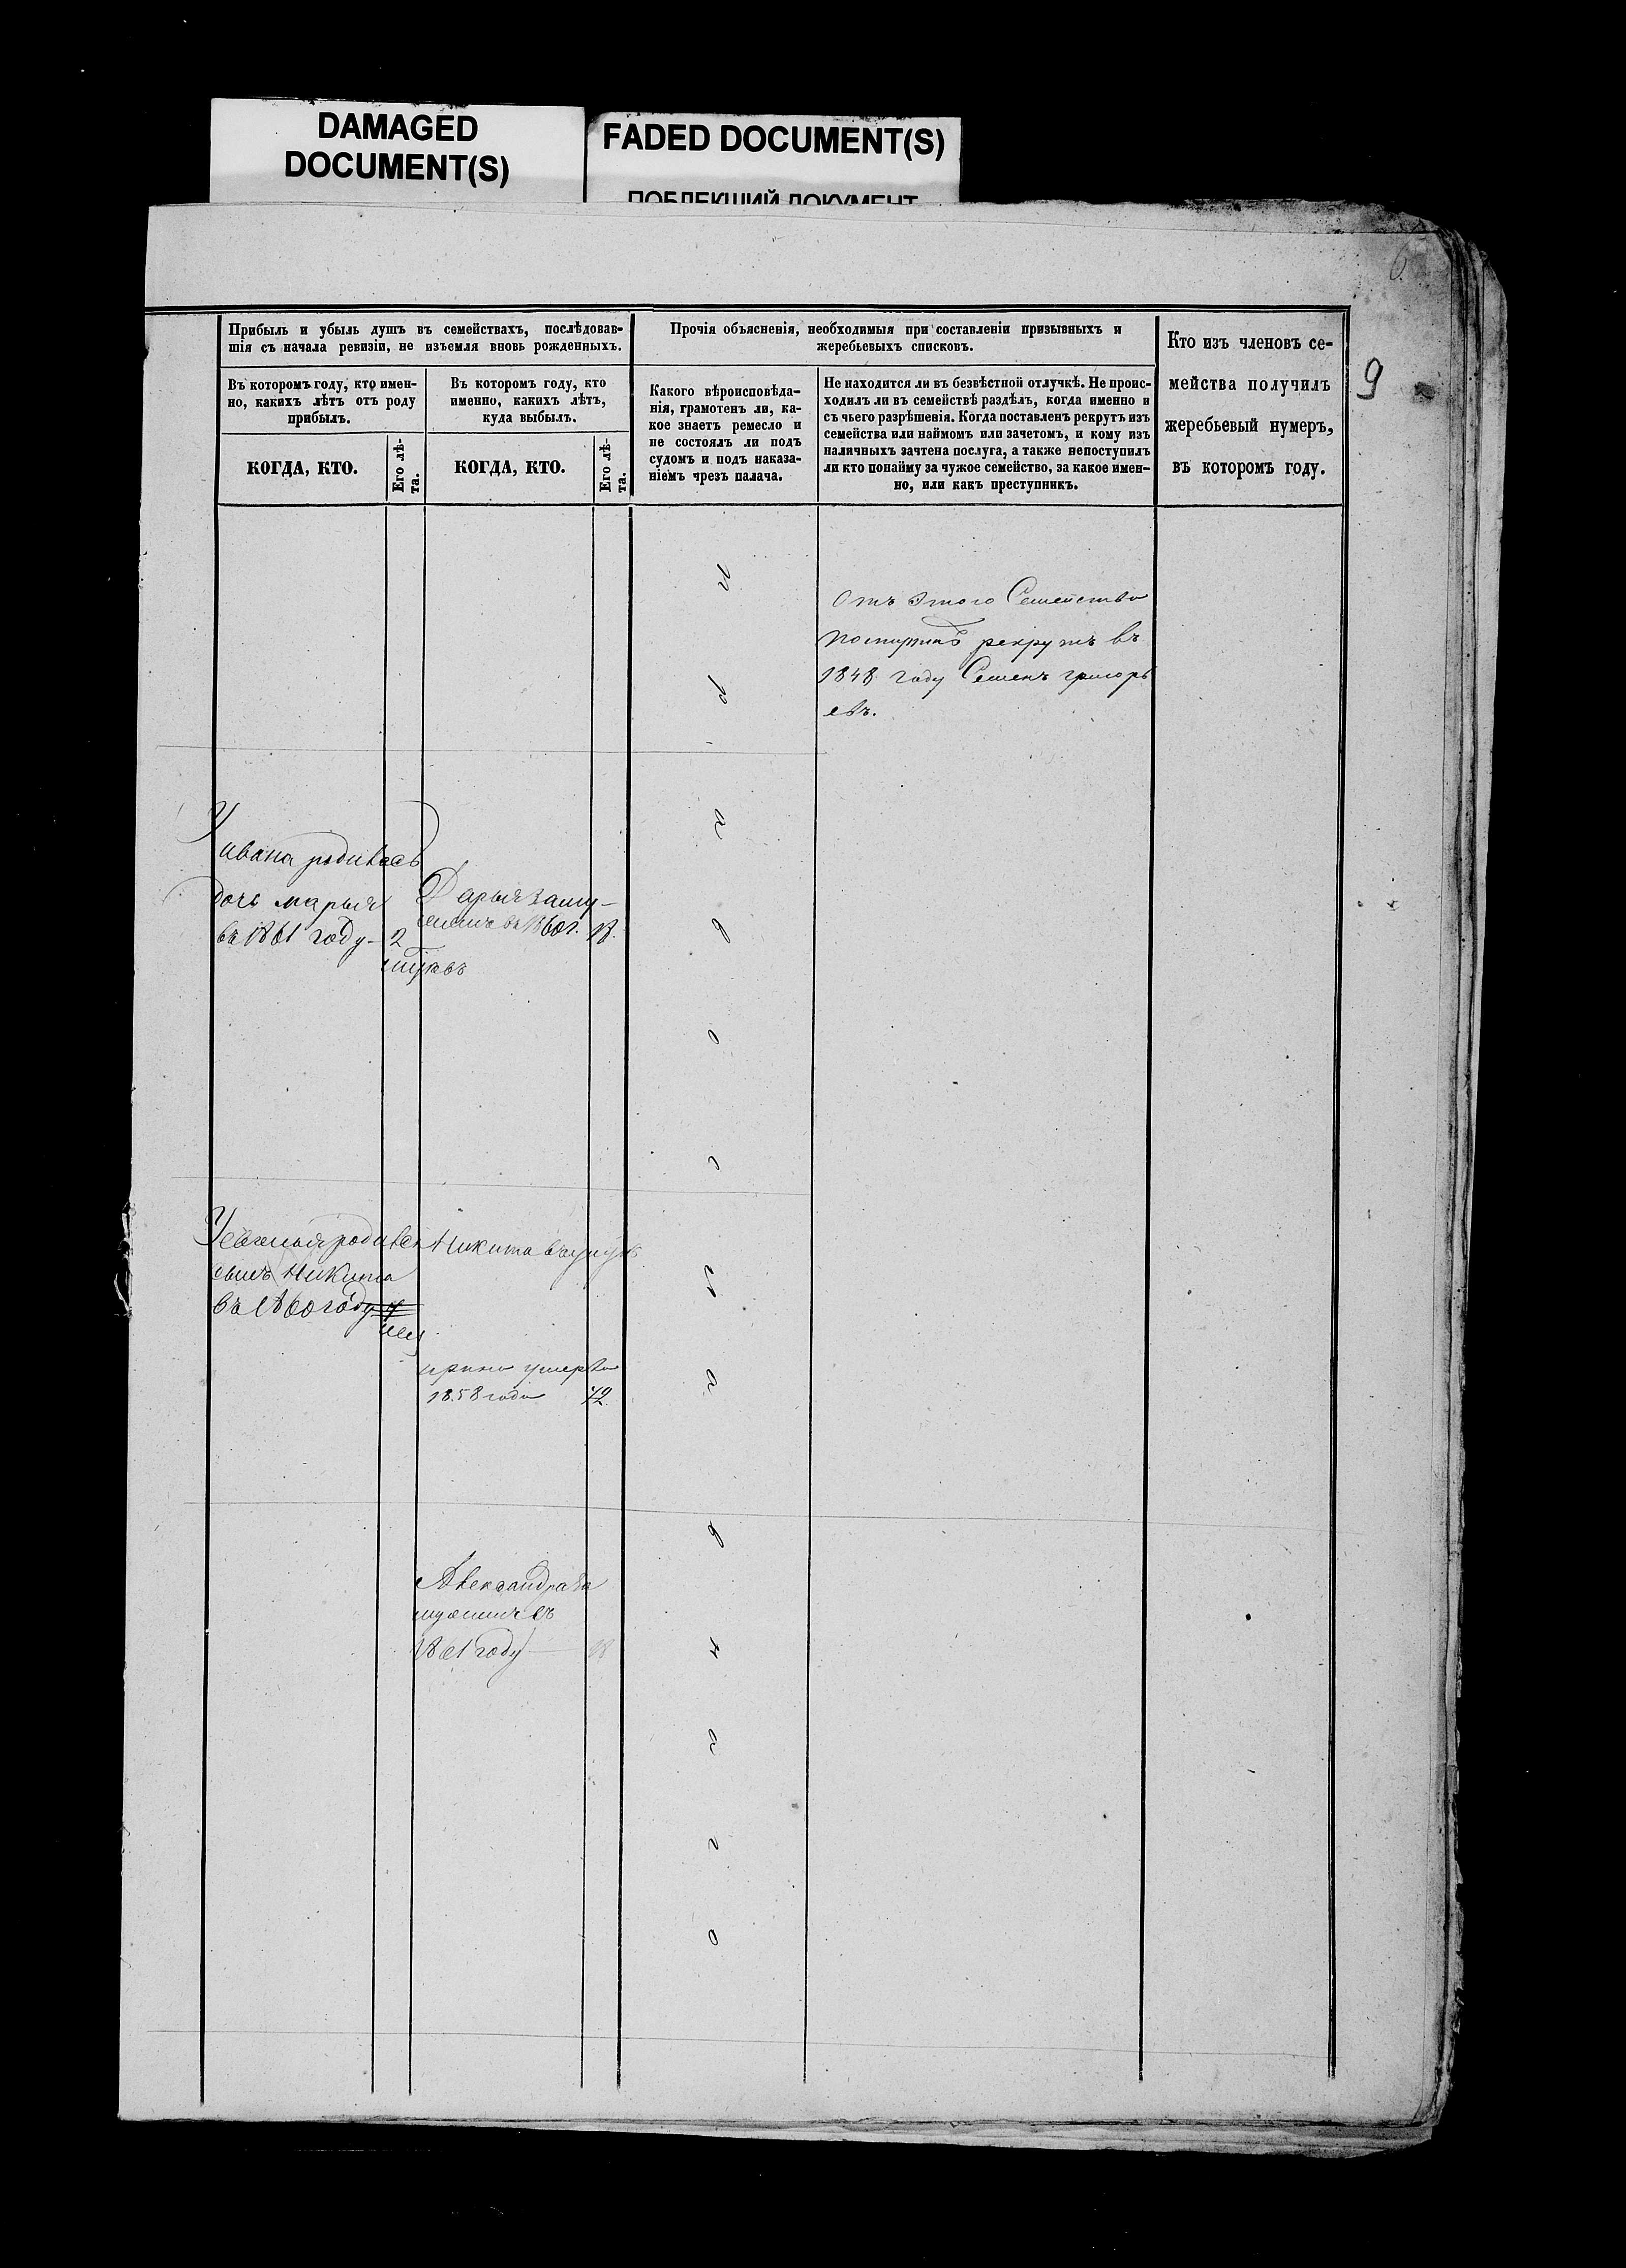 DAMAGED
DOCUMENT(S)
FADED DOCUMENT(S)
ПОБЛЕКШИЙ ДОКУМЕНТ
6
9
Прибыль и убыль душъ въ семействахъ, послѣдовав-
шія съ начала ревизіи, не изъемля вновь рожденныхъ.
Въ которомъ году, кто имен-
но, какихъ лѣтъ отъ роду
прибылъ.
КОГДА, КТО.
Его лѣ-
та.
Въ которомъ году, кто
именно, какихъ лѣтъ,
куда выбылъ.
КОГДА, КТО.
Его лѣ-
та.
Прочія объясненія, необходимыя при составленіи призывныхъ и
жеребьевыхъ списковъ.
Какого вѣроисповѣда-
нія, грамотенъ ли, ка-
кое знаетъ ремесло и
не состоялъ ли подъ
судомъ и подъ наказа-
ніемъ чрезъ палача.
Не находится ли въ безвѣстной отлучкѣ. Не проис-
ходилъ ли въ семействѣ раздѣлъ, когда именно и
съ чьего разрѣшенія. Когда поставленъ рекрутъ изъ
семейства или наймомъ или зачетомъ, и кому изъ
наличныхъ зачтена послуга, а также непоступилъ
ли кто понайму за чужое семейство, за какое имен-
но, или какъ преступникъ.
Кто изъ членовъ се-
мейства получилъ
жеребьевый нумеръ,
въ которомъ году.
Отъ этого Семейства
поступилъ рекрутъ въ
1848 году Семенъ григорь
евъ.
У
ивана родилась
дочь марья
въ 1861 году - 2
Дарья заму-
въ 1860 г. 18.
У родился
сынъ Никита
въ 1860 году
Никита
арина умерла
1858 года 72
Александра за
въ
1861 году 18
п р а в о с л а в н а г о